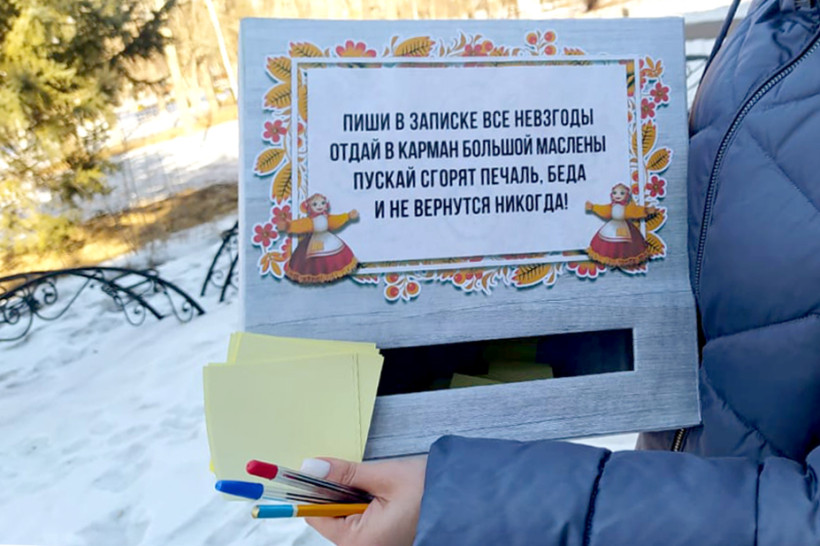 ПИШИ В ЗАПИСКЕ ВСЕ НЕВЗГОДЫ
ОТДАЙ В КАРМАН БОЛЬШОЙ МАСЛЕНЫ
ПУСКАЙ СГОРЯТ ПЕЧАЛЬ, БЕДА
И НЕ ВЕРНУТСЯ НИКОГДА!